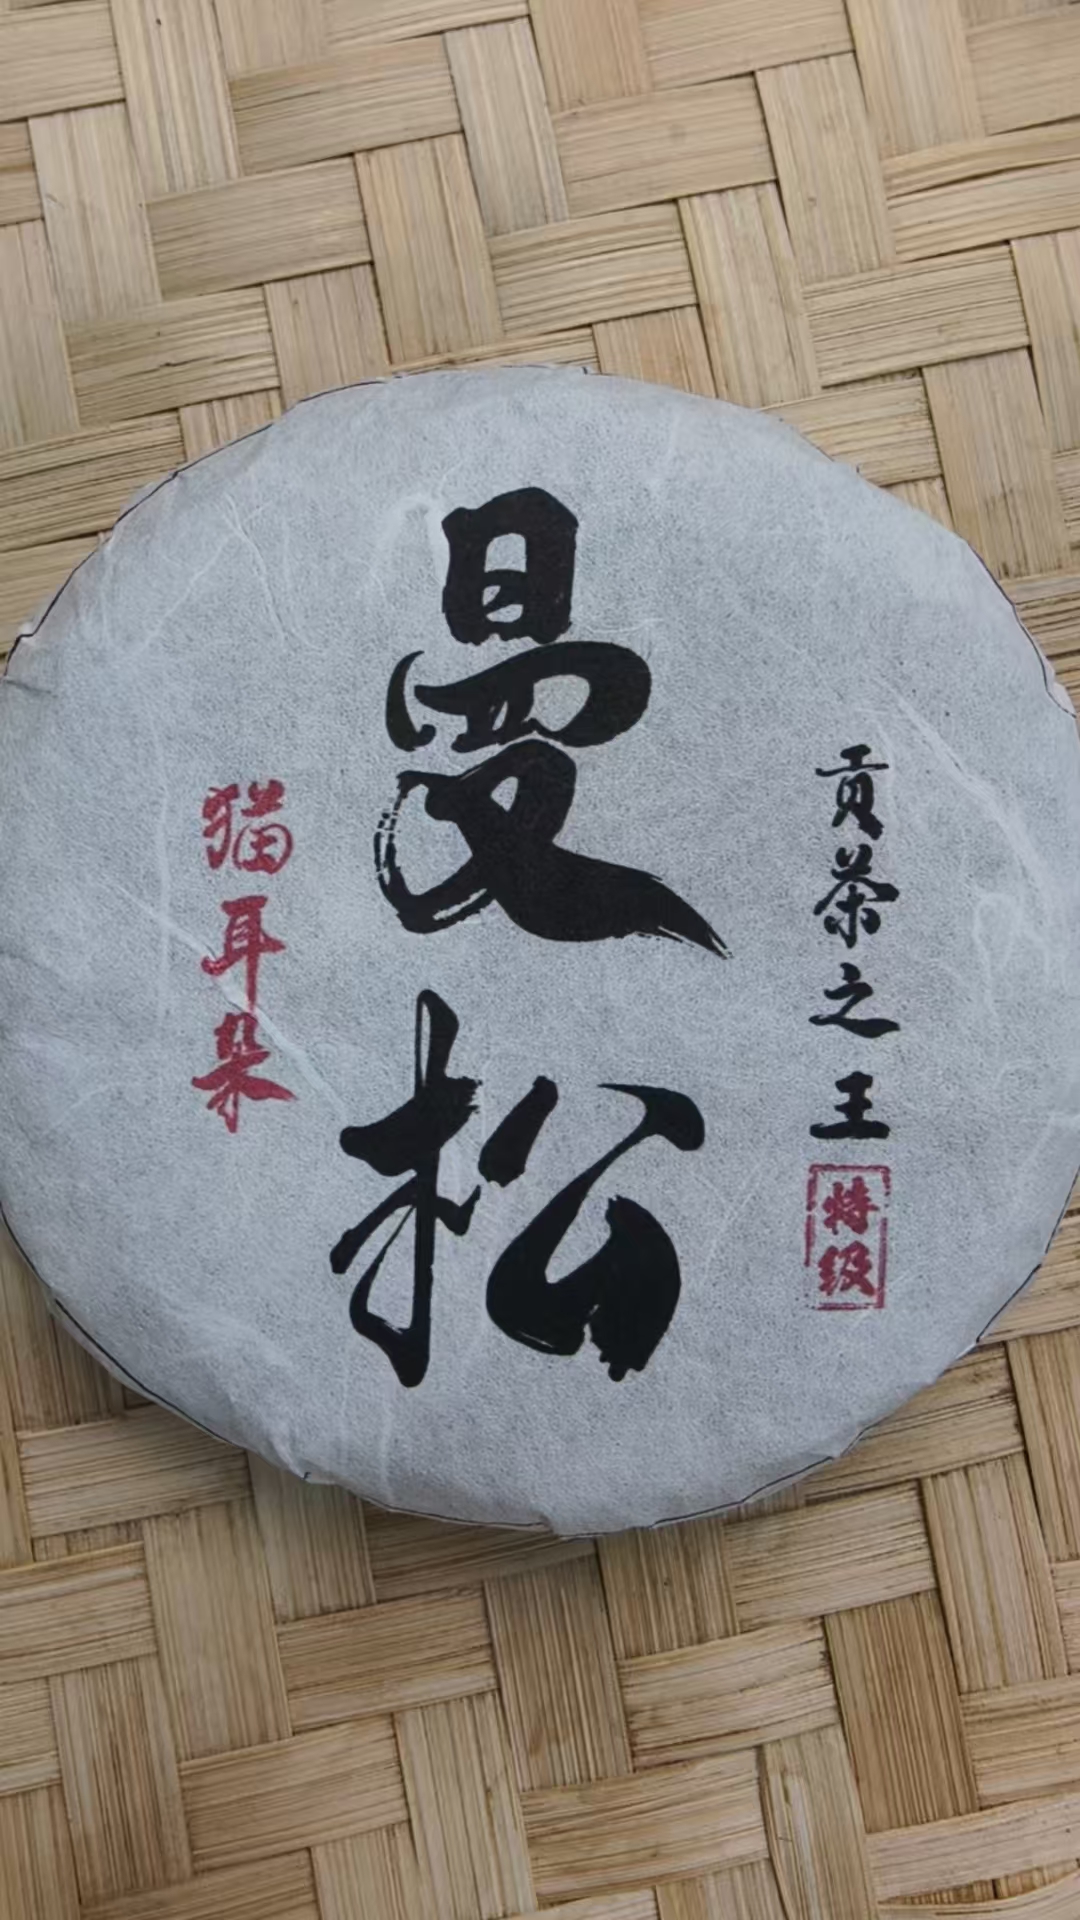 贡茶之王
特级
曼松
猫耳朵